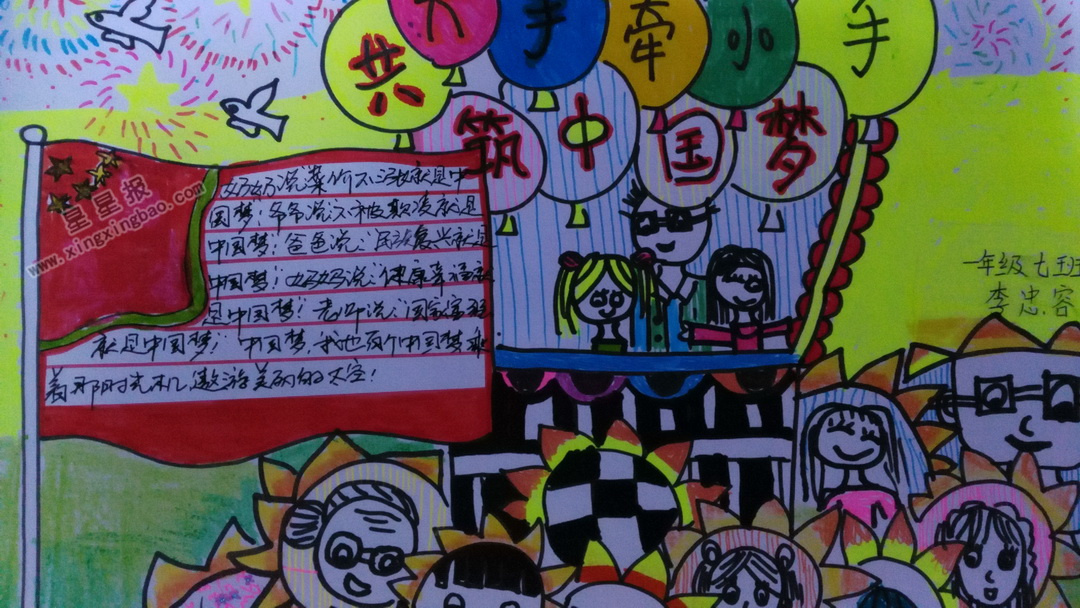 大手牵小手
共筑中国梦
妈妈说菜价不涨就是中
国梦！爷爷说不被欺凌就是
中国梦！爸爸说：民族复兴就是
中国梦！妈妈说：健康幸福就
是中国梦！老师说：国家富强
就是中国梦！中国梦，我也有个中国梦乘
着那时光机，遨游美丽的太空！
星星报
www.xingxingbao.com
一年级七班
李忠容